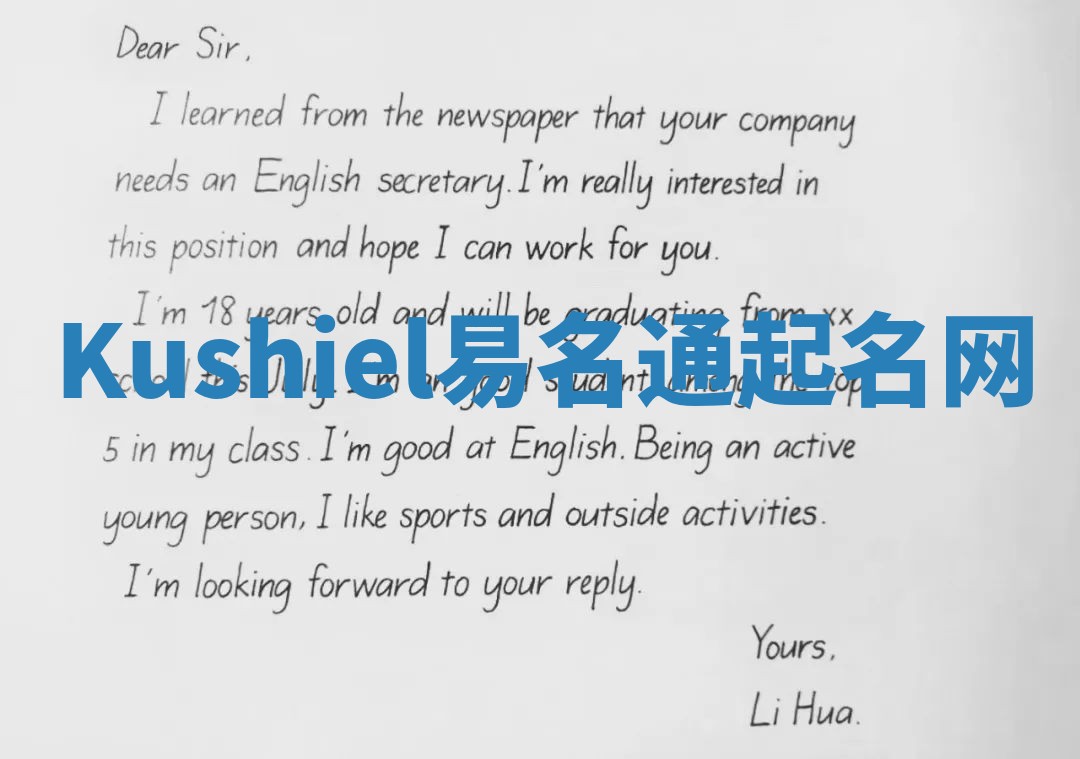 Dear Sir,
I learned from the newspaper that your company
needs an English secretary. I'm really interested in
this position and hope I can work for you.
I'm 18 years old and will be graduating from xx
Kushiel易名通起名网
school this July. I'm a good student among the top
5 in my class. I'm good at English. Being an active
young person, I like sports and outside activities.
I'm looking forward to your reply.
Yours,
Li Hua.